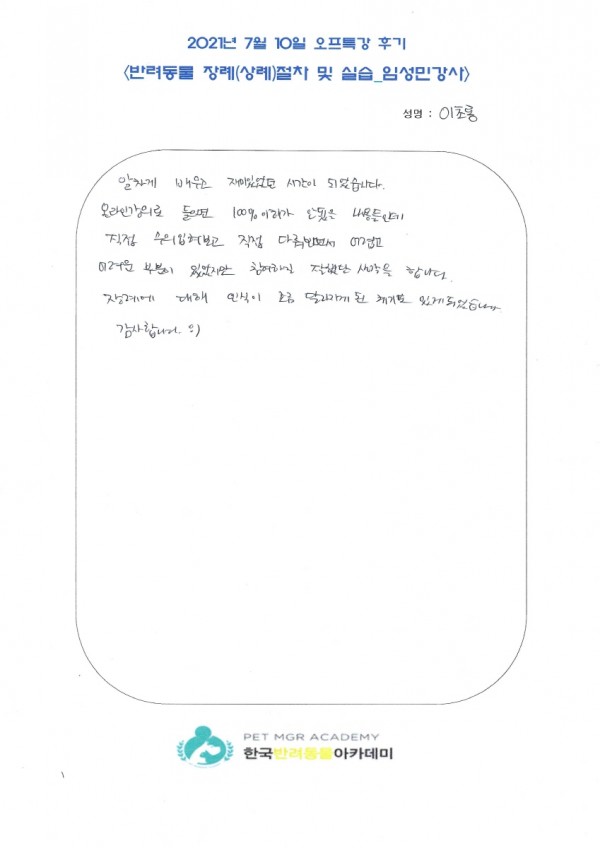 2021년 7월 10일 오프특강 후기
<반려동물 장례(상례)절차 및 실습_임성민강사>
성명 : 이초롱
알차게 배우고 재미있었던 시간이 되었습니다.
온라인강의로 들으면 100% 이해가 안됐을 내용들인데
직접 수의입혀보고 직접 다뤄보면서 어렵고
어려운 부분이 있었지만 참여하길 잘했단 생각을 합니다.
장례에 대해 인식이 조금 달라지게 된 계기도 있게되었습니다
감사합니다. :)
PET MGR ACADEMY
한국반려동물아카데미